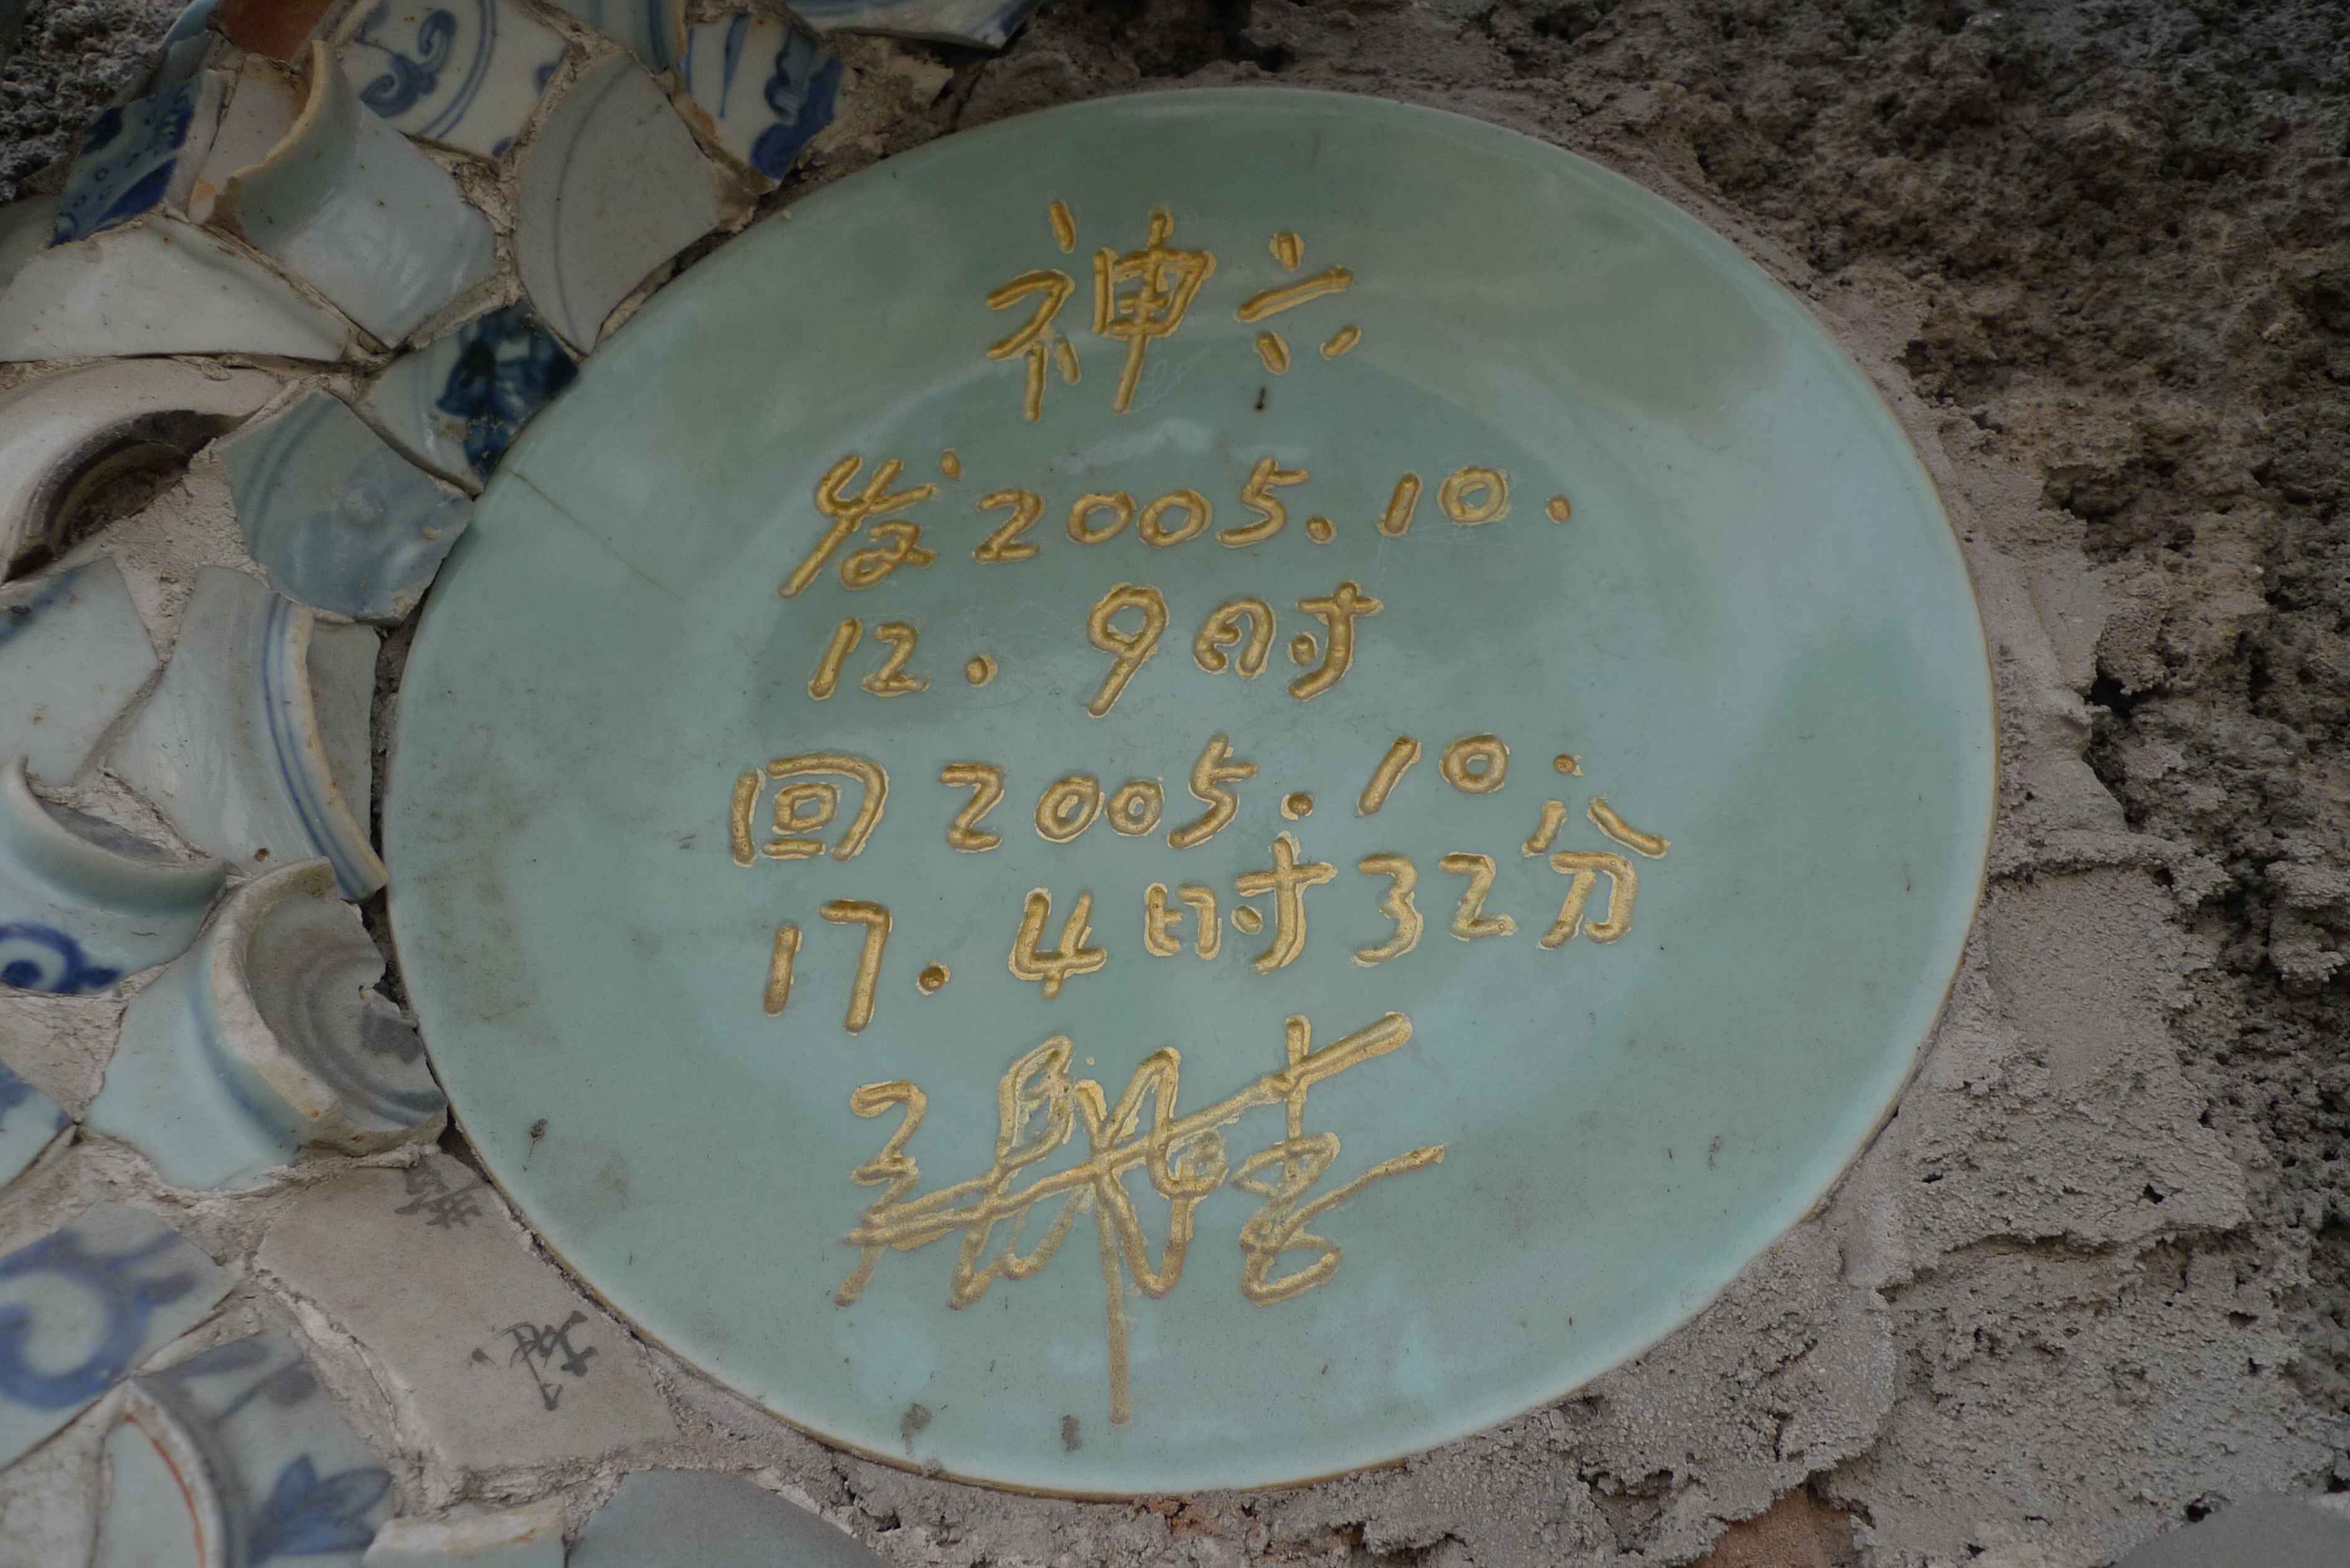 神六
发2005.10.
12.9时
回2005.10.
17.4时32分